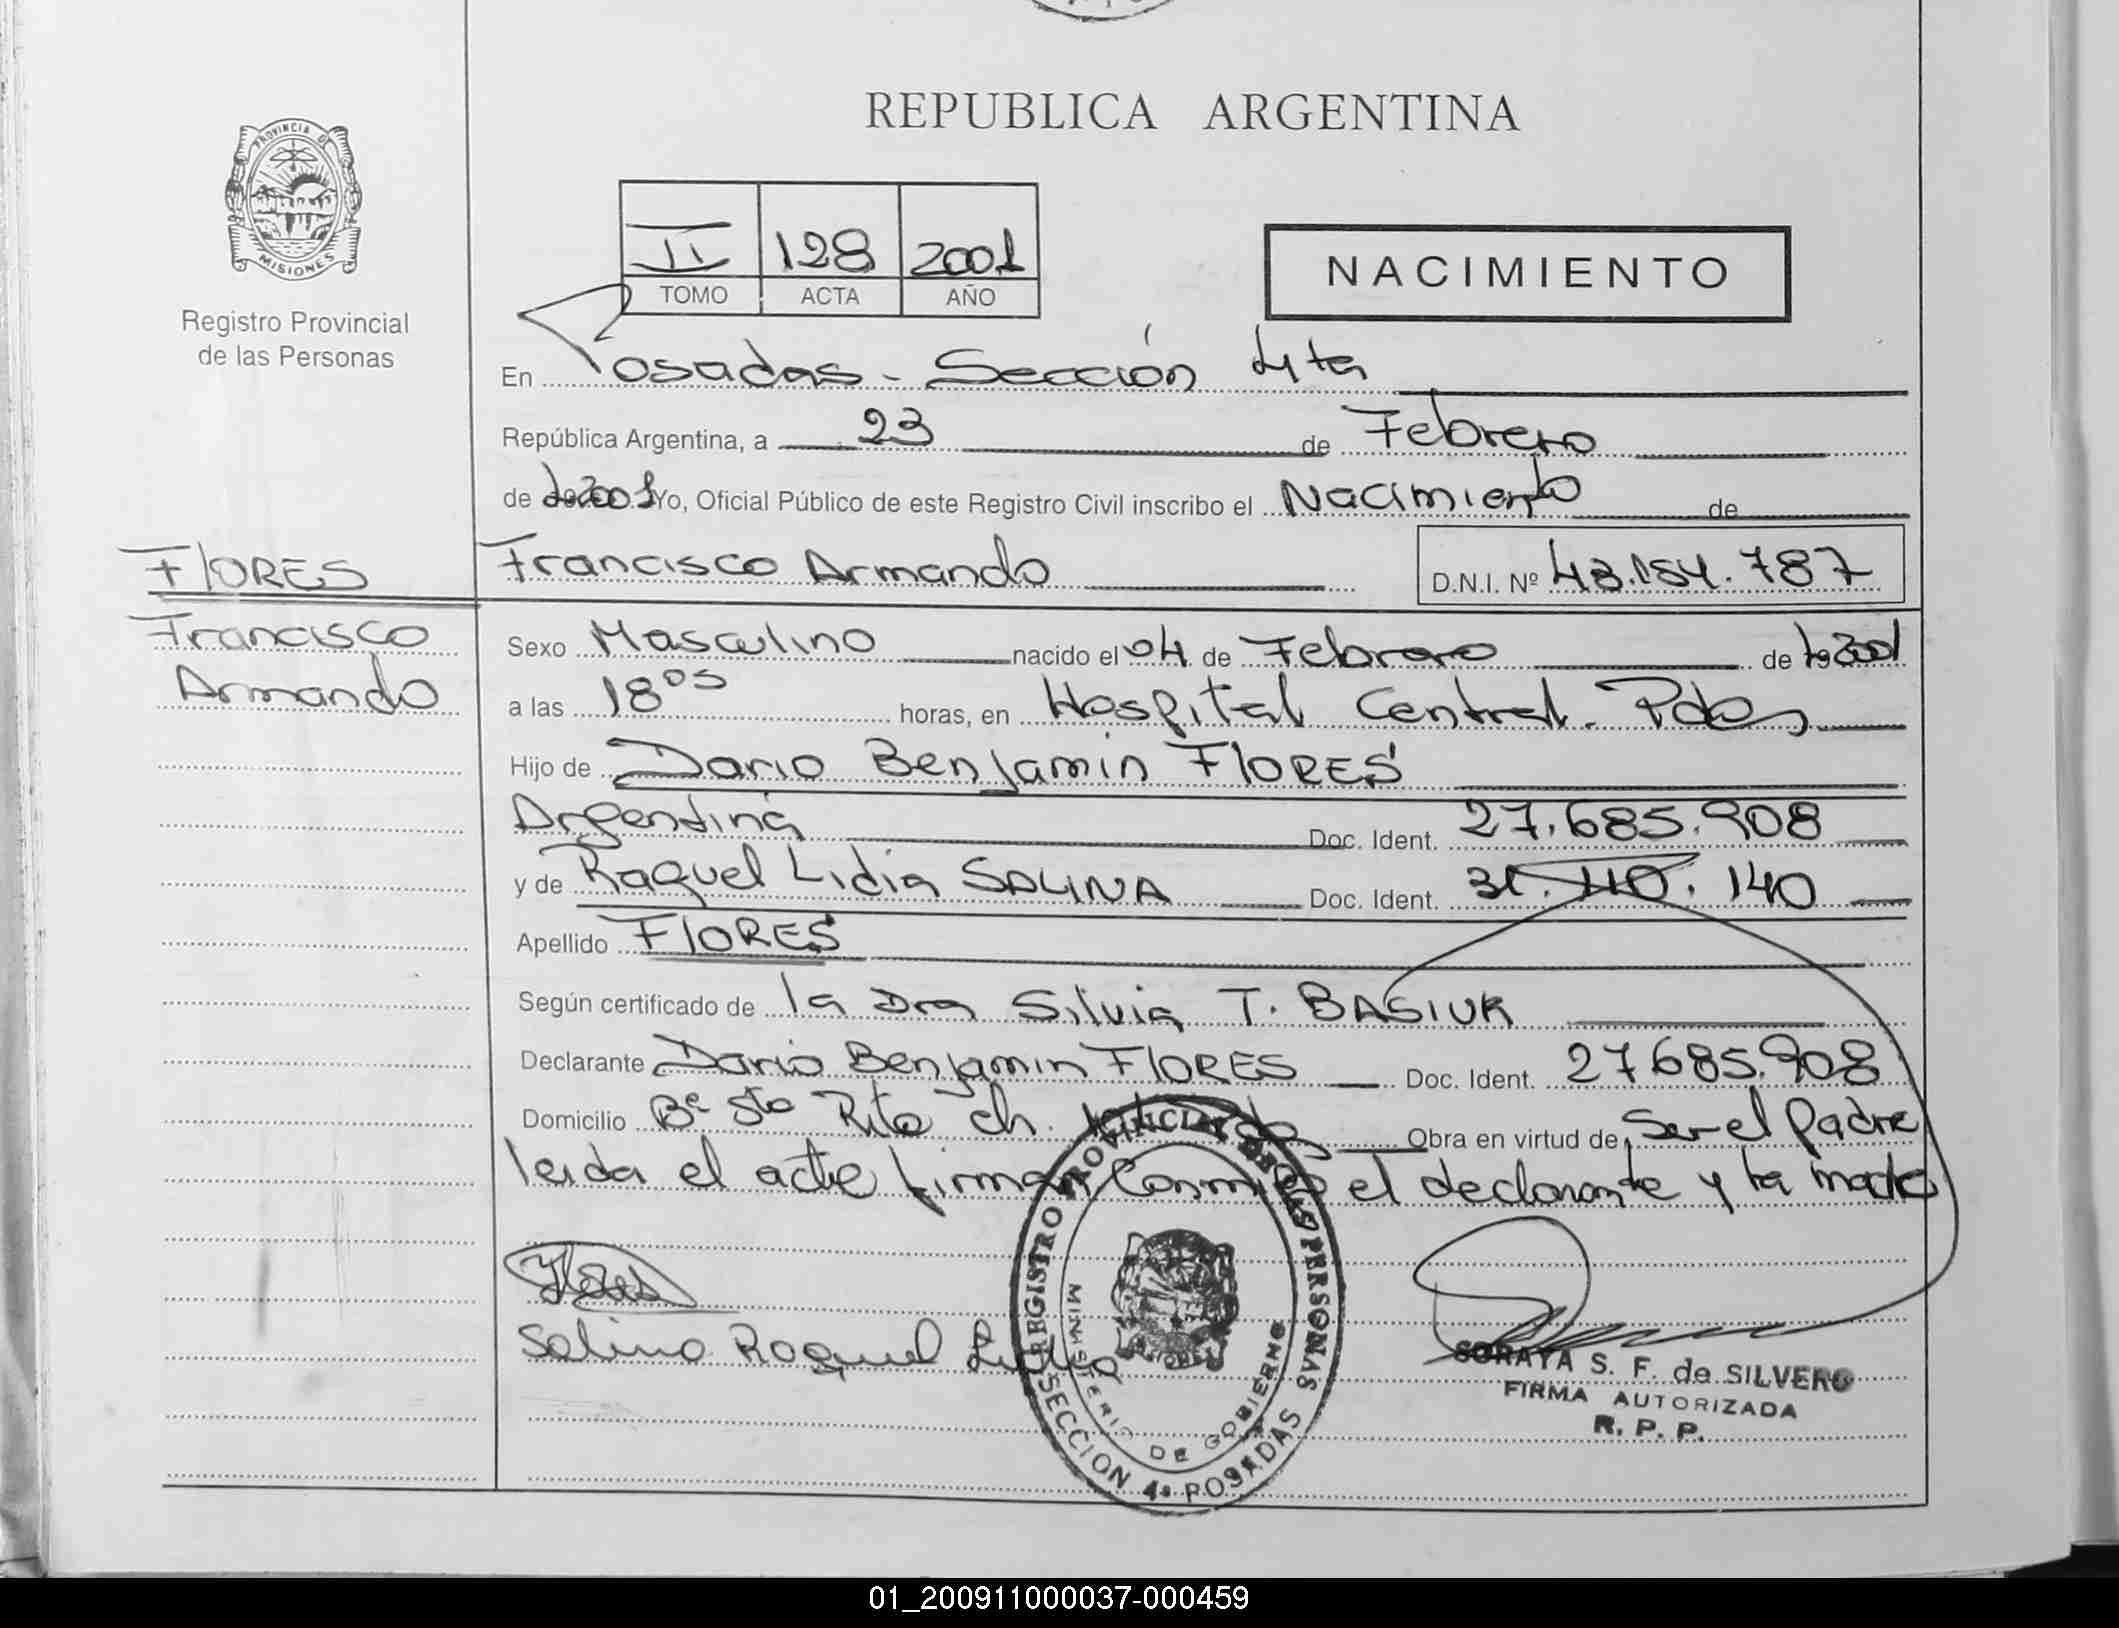 REPUBLICA ARGENTINA
PROVINCIA D
MISIONES
Registro Provincial
de las Personas
II 128 2001
TOMO ACTA AÑO
NACIMIENTO
En Posadas - Sección 4ta
República Argentina, a 23 de Febrero
de 2001 Yo, Oficial Público de este Registro Civil inscribo el Nacimiento de
FLORES Francisco Armando D.N.I. Nº 43.154.787
Francisco
Armando
Sexo Masculino nacido el 04 de Febrero de 2001
a las 18 05 horas, en Hospital Central. Pdas
Hijo de Dario Benjamin FLORES
Argentina Doc. Ident. 27.685.908
y de Raquel Lidia SALINA Doc. Ident. 31.110.140
Apellido FLORES
Según certificado de la Dra Silvia T. BASIUK
Declarante Dario Benjamin FLORES Doc. Ident. 27.685.908
Domicilio Bº Sta Rita ch. Obra en virtud de Ser el Padre
leida el acta firman conmigo el declarante y la madre
Flores
Salina Raquel Lidia
REGISTRO PROVINCIAL DE LAS PERSONAS
MINISTERIO DE GOBIERNO
SECCION 4a POSADAS
SORAYA S. F. de SILVERO
FIRMA AUTORIZADA
R. P. P.
01_200911000037-000459